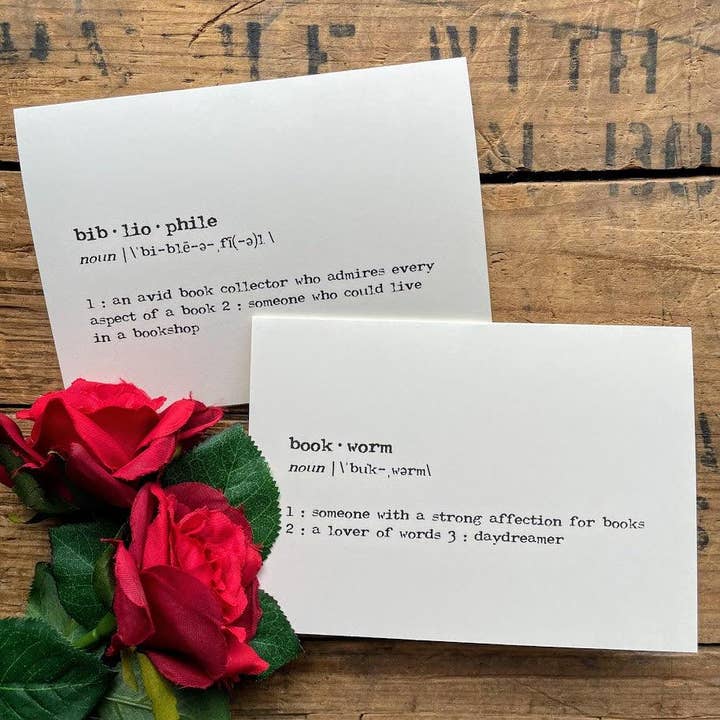 LE WITH
N BO
bib·lio·phile
noun |\ˈbi-blē-ə-ˌfī(-ə)l \
1 : an avid book collector who admires every
aspect of a book 2 : someone who could live
in a bookshop
book·worm
noun |\ˈbu̇k-ˌwərm\
1 : someone with a strong affection for books
2 : a lover of words 3 : daydreamer